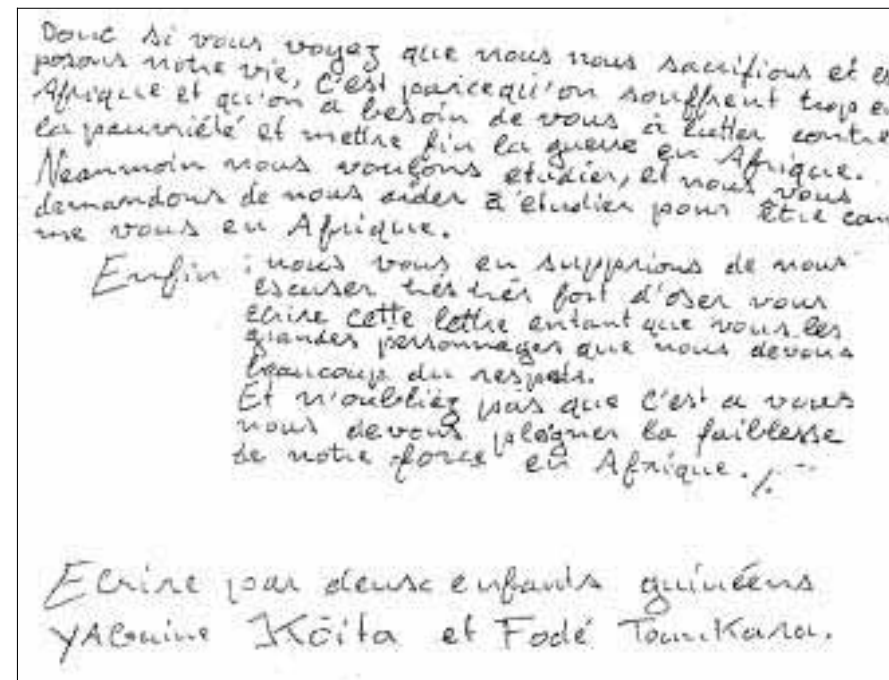 Donc si vous voyez que nous nous sacrifions et ex
posons notre vie, c'est parcequ'on souffrent trop en
Afrique et qu'on a besoin de vous à lutter contre
la pauvriété et mettre fin la guerre en Afrique.
Neanmoin nous voulons etudier, et nous vous
demandons de nous aider à étudier pour être com
me vous en Afrique.
Enfin : nous vous en supprions de nous
escuser très très fort d'oser vous
ecrire cette lettre entant que vous les
grandes personnages que nous devons
beaucoup du respets.
Et n'oubliez pas que c'est a vous
nous devons plégner la faiblesse
de notre force en Afrique. ./.
Ecrire par deux enfants guinéens
YAGuine Köita et Fodé TounKara.